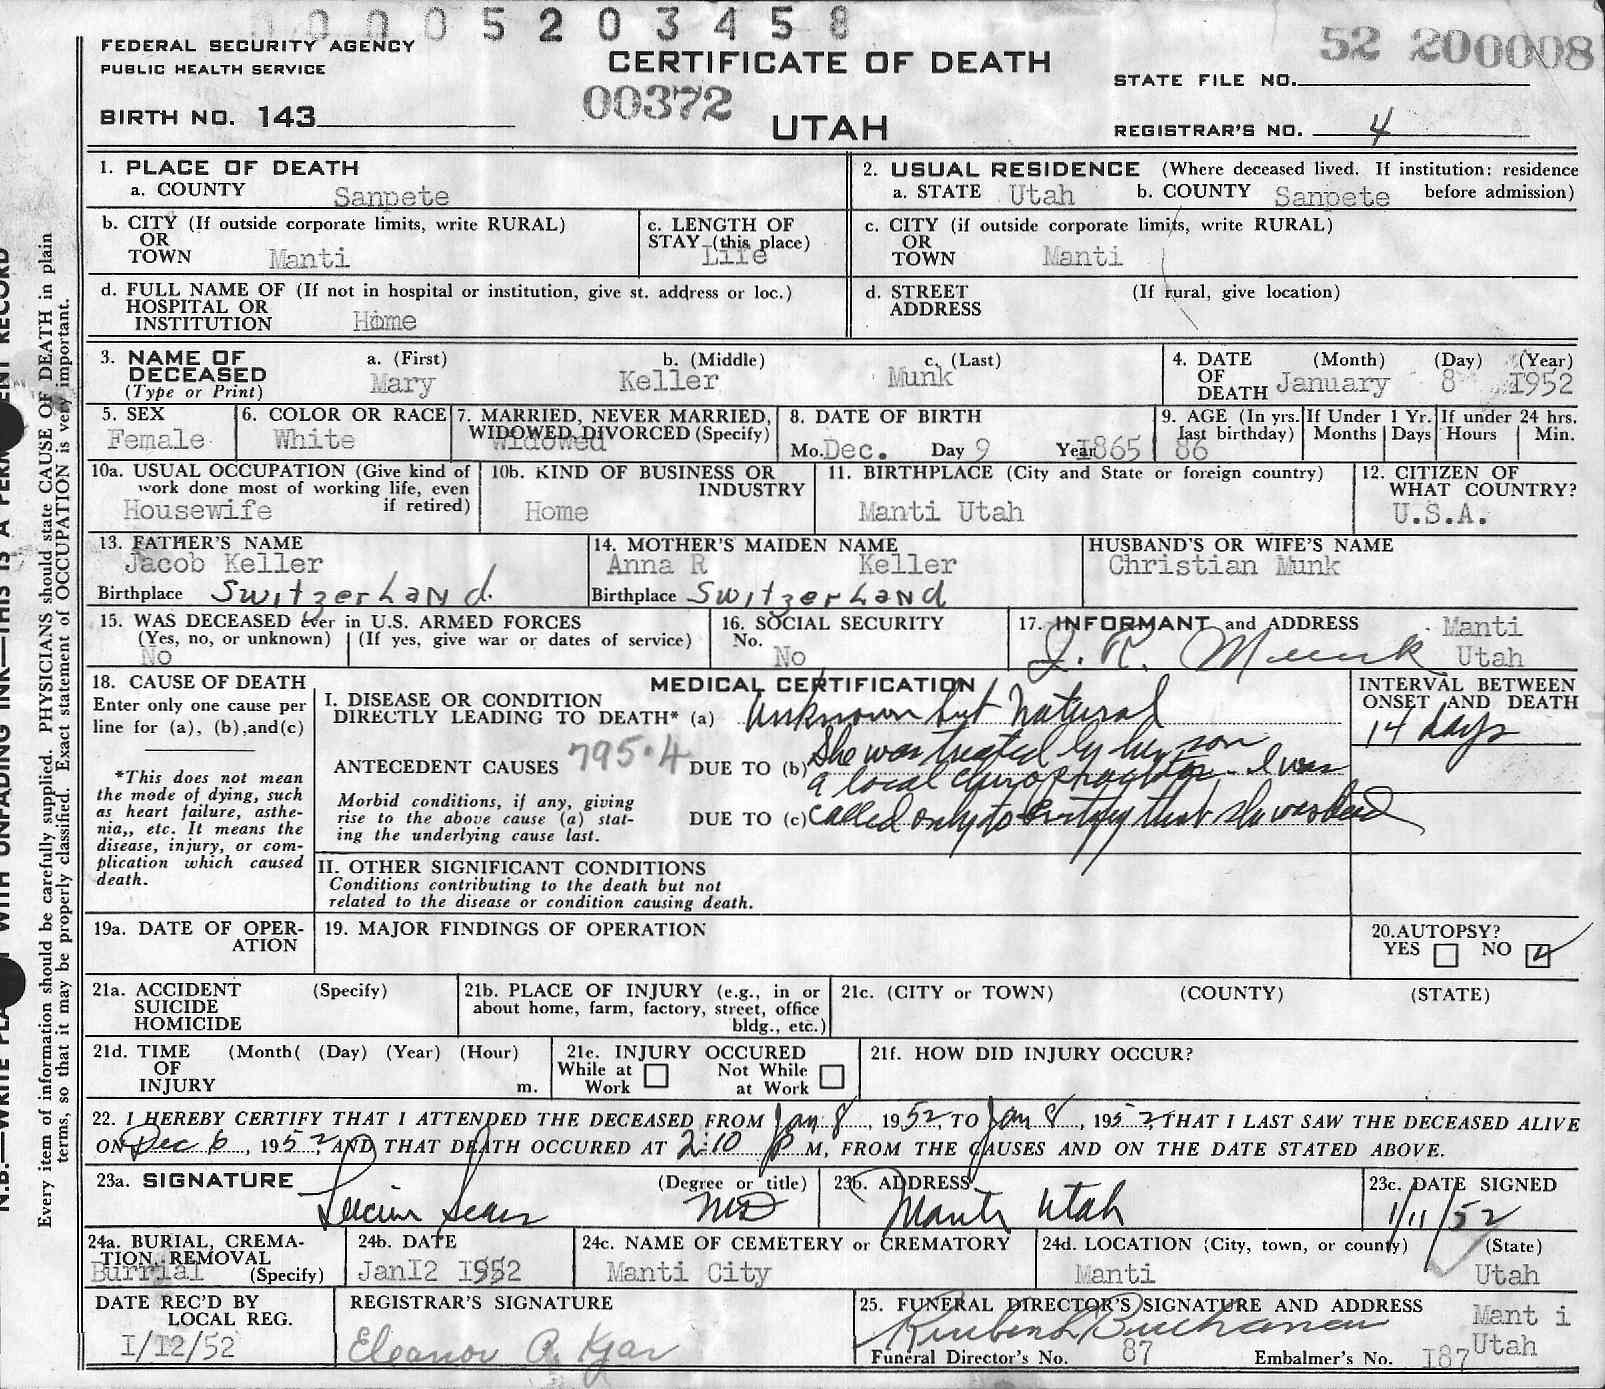 0005203458
FEDERAL SECURITY AGENCY
PUBLIC HEALTH SERVICE
CERTIFICATE OF DEATH
52 200008
STATE FILE NO.
BIRTH NO. 143
00372
UTAH
REGISTRAR'S NO. 4
1. PLACE OF DEATH
a. COUNTY Sanpete
2. USUAL RESIDENCE (Where deceased lived. If institution: residence before admission)
a. STATE Utah b. COUNTY Sanpete
b. CITY (If outside corporate limits, write RURAL)
OR
TOWN Manti
c. LENGTH OF
STAY (this place)
Life
c. CITY (if outside corporate limits, write RURAL)
OR
TOWN Manti
d. FULL NAME OF (If not in hospital or institution, give st. address or loc.)
HOSPITAL OR
INSTITUTION Home
d. STREET (If rural, give location)
ADDRESS
3. NAME OF
DECEASED
(Type or Print)
a. (First) b. (Middle) c. (Last)
Mary Keller Munk
4. DATE (Month) (Day) (Year)
OF
DEATH January 8 1952
5. SEX
Female
6. COLOR OR RACE
White
7. MARRIED, NEVER MARRIED,
WIDOWED, DIVORCED (Specify)
Widowed
8. DATE OF BIRTH
Mo. Dec. Day 9 Year 1865
9. AGE (In yrs.
last birthday)
86
If Under 1 Yr.
Months Days
If under 24 hrs.
Hours Min.
10a. USUAL OCCUPATION (Give kind of
work done most of working life, even
if retired)
Housewife
10b. KIND OF BUSINESS OR
INDUSTRY
Home
11. BIRTHPLACE (City and State or foreign country)
Manti Utah
12. CITIZEN OF
WHAT COUNTRY?
U.S.A.
13. FATHER'S NAME
Jacob Keller
Birthplace Switzerland
14. MOTHER'S MAIDEN NAME
Anna R Keller
Birthplace Switzerland
HUSBAND'S OR WIFE'S NAME
Christian Munk
15. WAS DECEASED Ever in U.S. ARMED FORCES
(Yes, no, or unknown) (If yes, give war or dates of service)
No
16. SOCIAL SECURITY
No.
No
17. INFORMANT and ADDRESS Manti
Munk Utah
18. CAUSE OF DEATH
Enter only one cause per
line for (a), (b),and(c)
*This does not mean
the mode of dying, such
as heart failure, asthe-
nia,, etc. It means the
disease, injury, or com-
plication which caused
death.
MEDICAL CERTIFICATION
I. DISEASE OR CONDITION
DIRECTLY LEADING TO DEATH* (a) Unknown but Natural
INTERVAL BETWEEN
ONSET AND DEATH
14 days
ANTECEDENT CAUSES 795.4 DUE TO (b) She was treated by her son
a local chiropractor. I was
Morbid conditions, if any, giving
rise to the above cause (a) stat-
ing the underlying cause last.
DUE TO (c) called only to certify that she was dead
II. OTHER SIGNIFICANT CONDITIONS
Conditions contributing to the death but not
related to the disease or condition causing death.
19a. DATE OF OPER-
ATION
19. MAJOR FINDINGS OF OPERATION
20.AUTOPSY?
YES NO
21a. ACCIDENT (Specify)
SUICIDE
HOMICIDE
21b. PLACE OF INJURY (e.g., in or
about home, farm, factory, street, office
bldg., etc.)
21c. (CITY or TOWN) (COUNTY) (STATE)
21d. TIME (Month( (Day) (Year) (Hour)
OF
INJURY m.
21e. INJURY OCCURED
While at Not While
Work at Work
21f. HOW DID INJURY OCCUR?
22. I HEREBY CERTIFY THAT I ATTENDED THE DECEASED FROM Jan 8, 1952, TO Jan 8, 1952, THAT I LAST SAW THE DECEASED ALIVE
ON Dec 6, 1952, AND THAT DEATH OCCURED AT 2:10 p M, FROM THE CAUSES AND ON THE DATE STATED ABOVE.
23a. SIGNATURE (Degree or title)
MD
23b. ADDRESS
Manti Utah
23c. DATE SIGNED
1/11/52
24a. BURIAL, CREMA-
TION, REMOVAL
Burrial (Specify)
24b. DATE
JanI2 I952
24c. NAME OF CEMETERY or CREMATORY
Manti City
24d. LOCATION (City, town, or county) (State)
Manti Utah
DATE REC'D BY
LOCAL REG.
I/I2/52
REGISTRAR'S SIGNATURE
Eleanor P. Kjar
25. FUNERAL DIRECTOR'S SIGNATURE AND ADDRESS Manti
Buchanan Utah
Funeral Director's No. 87 Embalmer's No. I87
N.B.—WRITE WITH UNFADING INK—THIS IS A RECORD
Every item of information should be carefully supplied. PHYSICIANS should state CAUSE OF DEATH in plain
terms, so that it may be properly classified. Exact statement of OCCUPATION is very important.